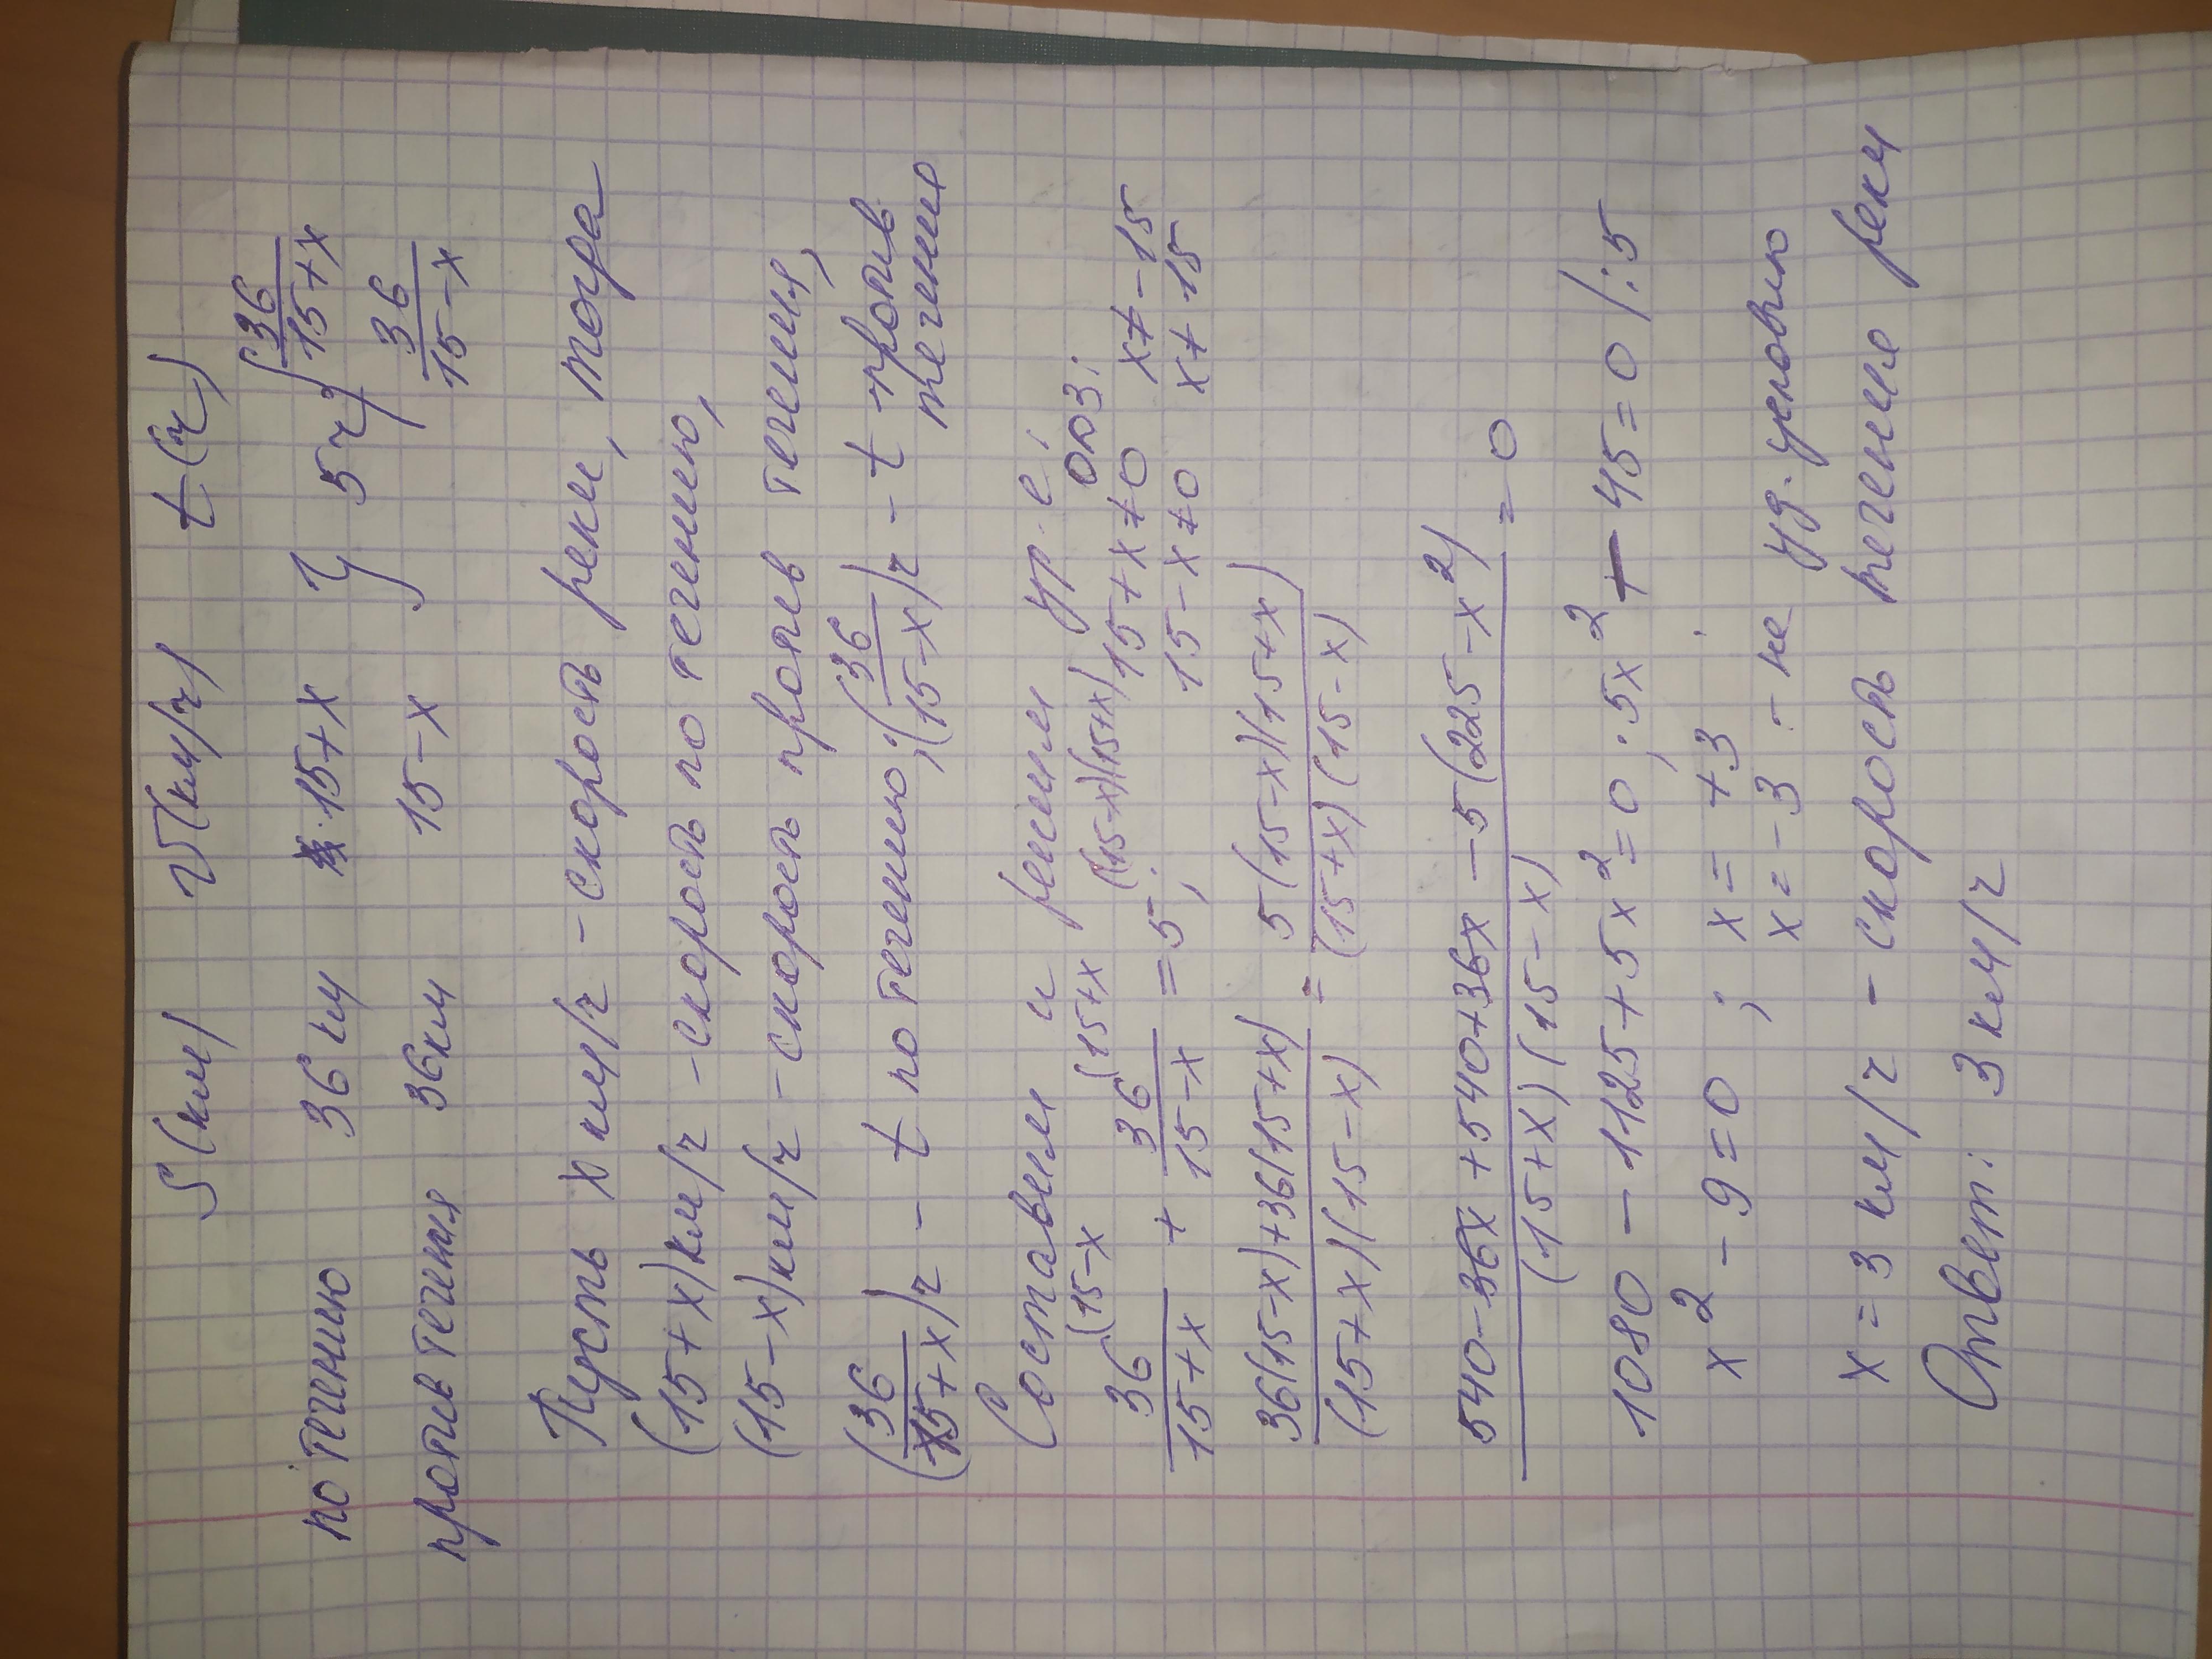 S(км) V(км/ч) t(ч)
по течению 36 км 15+x } 5 ч { 36/(15+x)
против течения 36 км 15-x 36/(15-x)
Пусть x км/ч - скорость реки, тогда
(15+x) км/ч - скорость по течению,
(15-x) км/ч - скорость против течения,
(36/(15+x)) ч - t по течению; (36/(15-x)) ч - t - против
течение
Составим и решим ур-е: ОДЗ:
36/(15+x) (15-x + 36/(15-x) (15+x = 5 (15-x)(15+x); 15+x≠0 x≠-15
15-x≠0 x≠15
36(15-x)+36(15+x)/(15+x)(15-x) = 5(15-x)(15+x)/(15+x)(15-x)
540-36x+540+36x-5(225-x²)/(15+x)(15-x) = 0
1080-1125+5x²=0; 5x²-45=0 /:5
x²-9=0; x=+3
x=-3 - не уд. условию
x=3 км/ч - скорость течение реки
Ответ: 3 км/ч